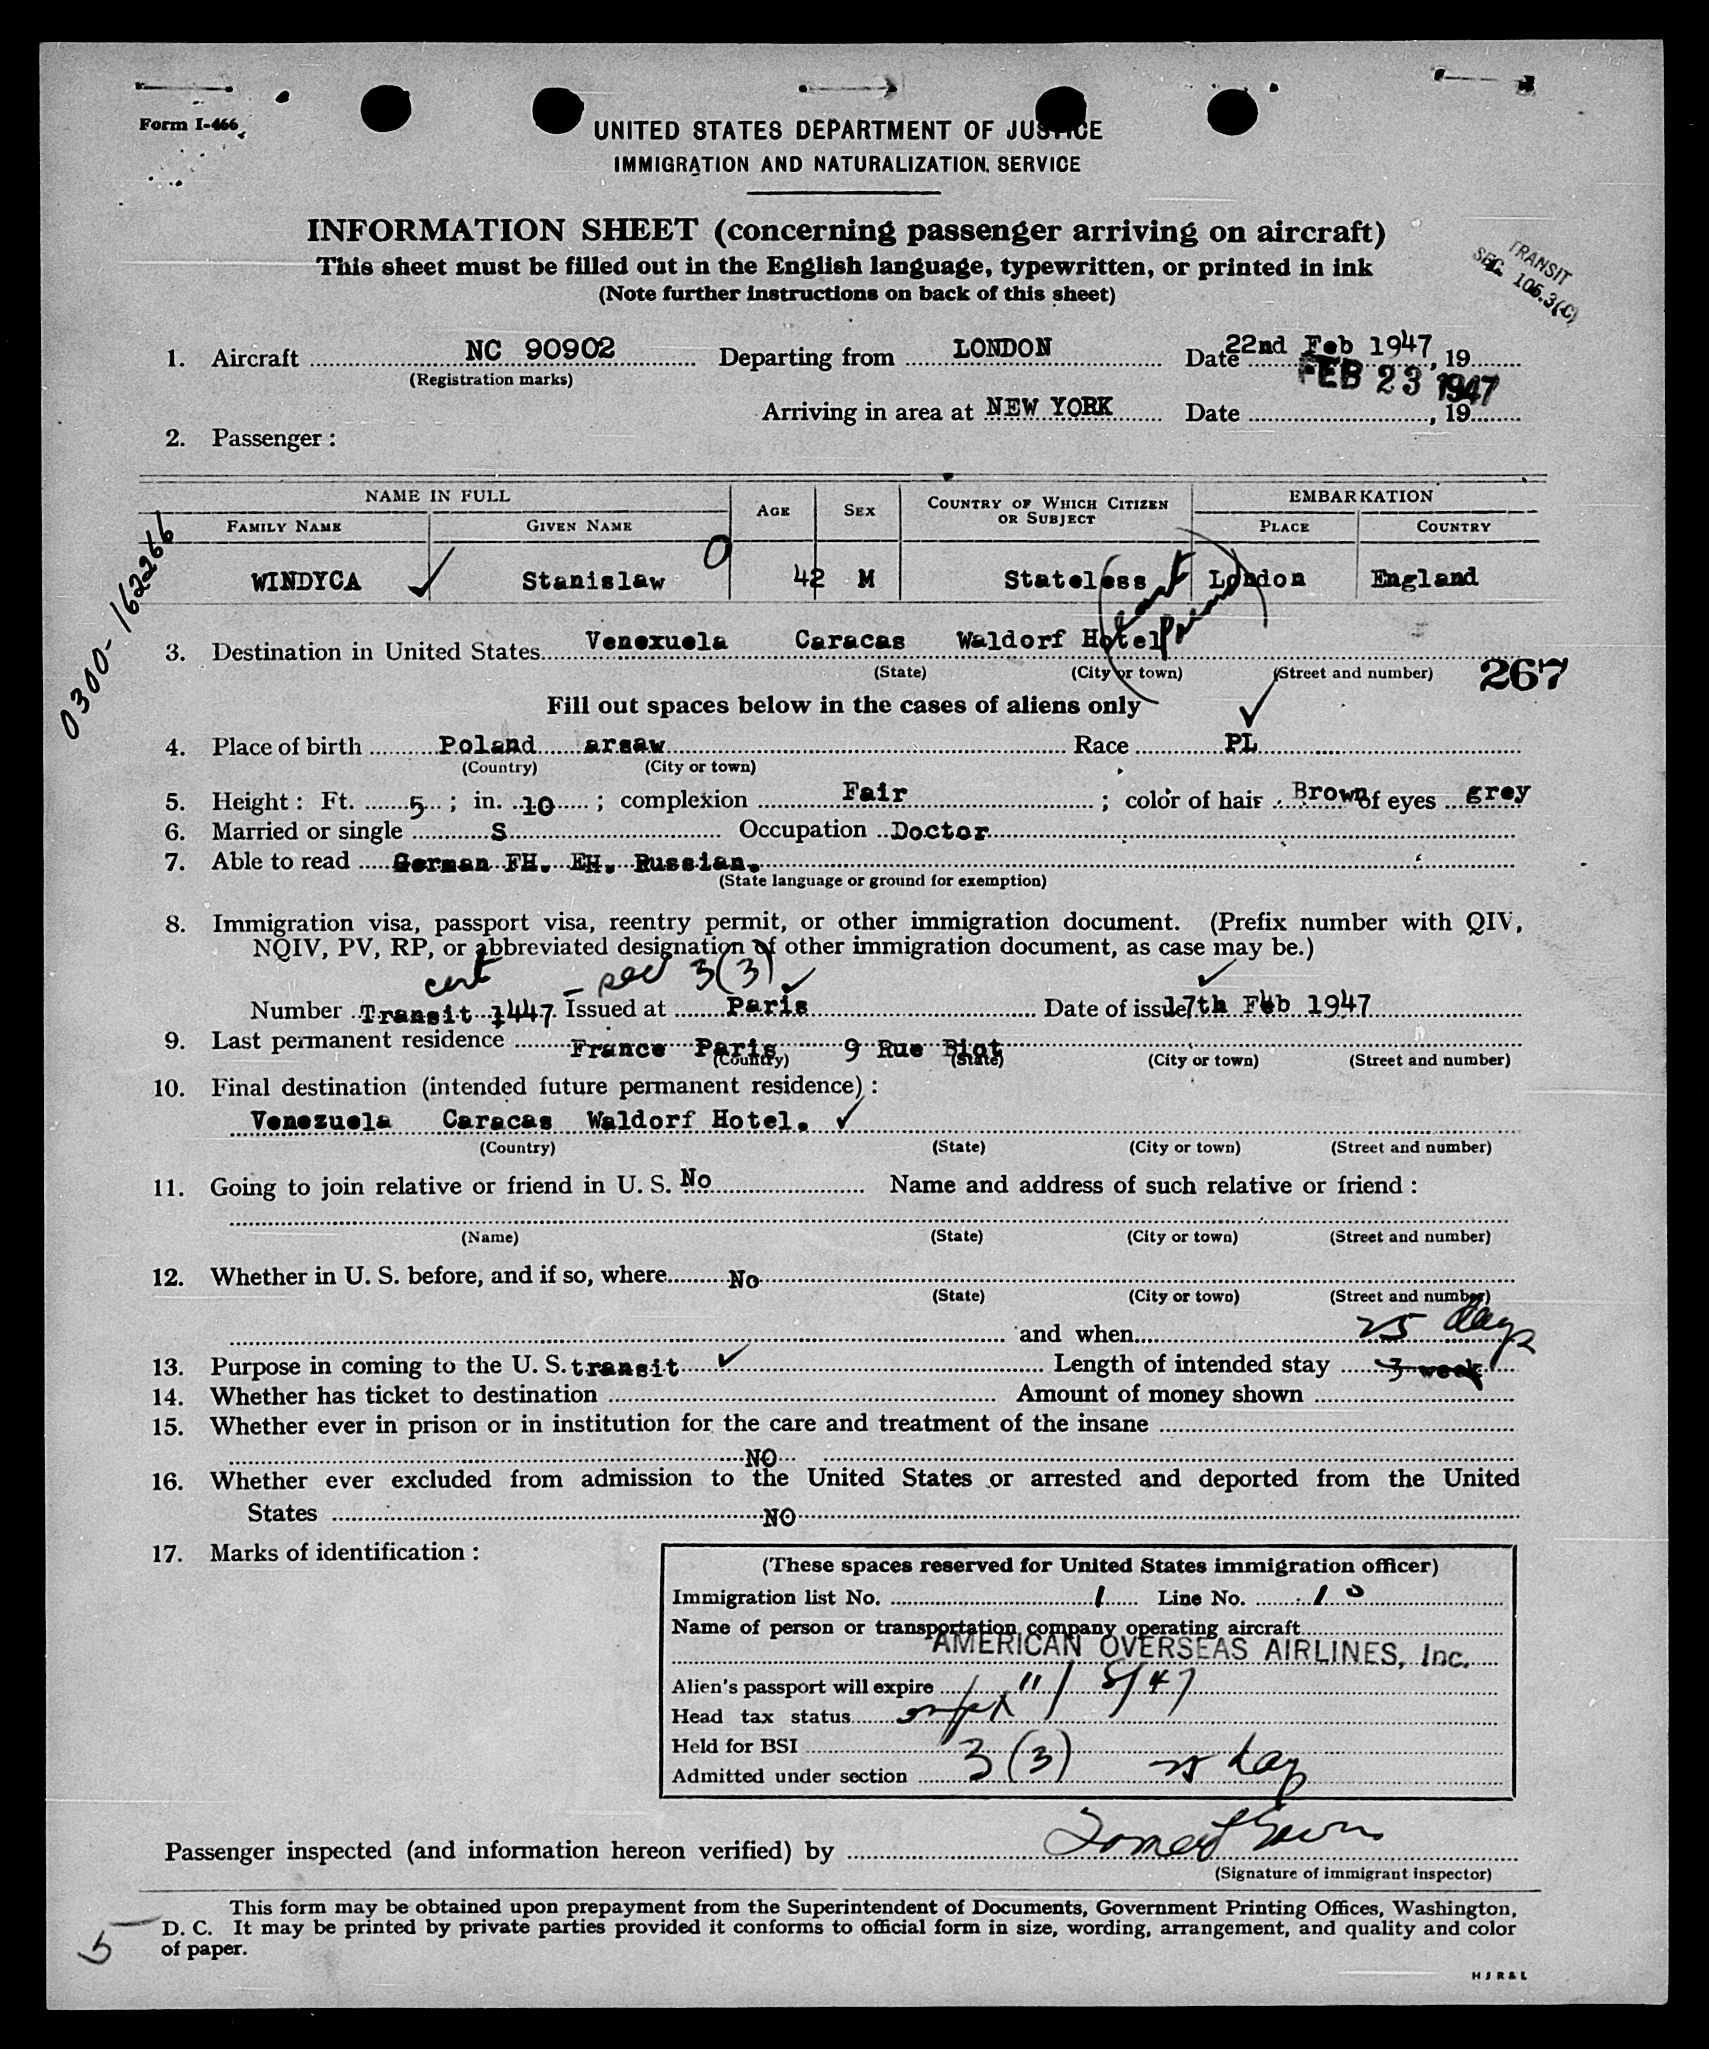 Form I-466
UNITED STATES DEPARTMENT OF JUSTICE
IMMIGRATION AND NATURALIZATION SERVICE
INFORMATION SHEET (concerning passenger arriving on aircraft)
This sheet must be filled out in the English language, typewritten, or printed in ink
(Note further instructions on back of this sheet)
TRANSIT
SEC. 105.3(C)
1. Aircraft NC 90902 Departing from LONDON Date 22nd Feb 1947, 19
(Registration marks)
FEB 23 1947
Arriving in area at NEW YORK Date , 19
2. Passenger:
NAME IN FULL AGE SEX COUNTRY OF WHICH CITIZEN OR SUBJECT EMBARKATION
FAMILY NAME GIVEN NAME PLACE COUNTRY
WINDYCA Stanislaw 42 M Stateless London England
0300-162266
3. Destination in United States Venexuela Caracas Waldorf Hotel
(State) (City or town) (Street and number)
267
Fill out spaces below in the cases of aliens only
4. Place of birth Poland arsaw Race PL
(Country) (City or town)
5. Height: Ft. 5; in. 10; complexion Fair; color of hair Brown of eyes grey
6. Married or single S Occupation Doctor
7. Able to read German FH. EH. Russian.
(State language or ground for exemption)
8. Immigration visa, passport visa, reentry permit, or other immigration document. (Prefix number with QIV,
NQIV, PV, RP, or abbreviated designation of other immigration document, as case may be.)
cert - sec 3(3)
Number Transit 1447 Issued at Paris Date of issue 17th Feb 1947
9. Last permanent residence France Paris 9 Rue Biot
(Country) (State) (City or town) (Street and number)
10. Final destination (intended future permanent residence):
Venezuela Caracas Waldorf Hotel.
(Country) (State) (City or town) (Street and number)
11. Going to join relative or friend in U. S. No Name and address of such relative or friend:
(Name) (State) (City or town) (Street and number)
12. Whether in U. S. before, and if so, where No
(State) (City or town) (Street and number)
and when
25 days
13. Purpose in coming to the U. S. transit Length of intended stay 3 week
14. Whether has ticket to destination Amount of money shown
15. Whether ever in prison or in institution for the care and treatment of the insane
NO
16. Whether ever excluded from admission to the United States or arrested and deported from the United
States NO
17. Marks of identification:
(These spaces reserved for United States immigration officer)
Immigration list No. 1 Line No. 10
Name of person or transportation company operating aircraft
AMERICAN OVERSEAS AIRLINES, Inc.
Alien's passport will expire 11/8/47
Head tax status
Held for BSI
Admitted under section 3(3) 25 day
Passenger inspected (and information hereon verified) by
(Signature of immigrant inspector)
This form may be obtained upon prepayment from the Superintendent of Documents, Government Printing Offices, Washington,
D. C. It may be printed by private parties provided it conforms to official form in size, wording, arrangement, and quality and color
of paper.
5
H J R & L